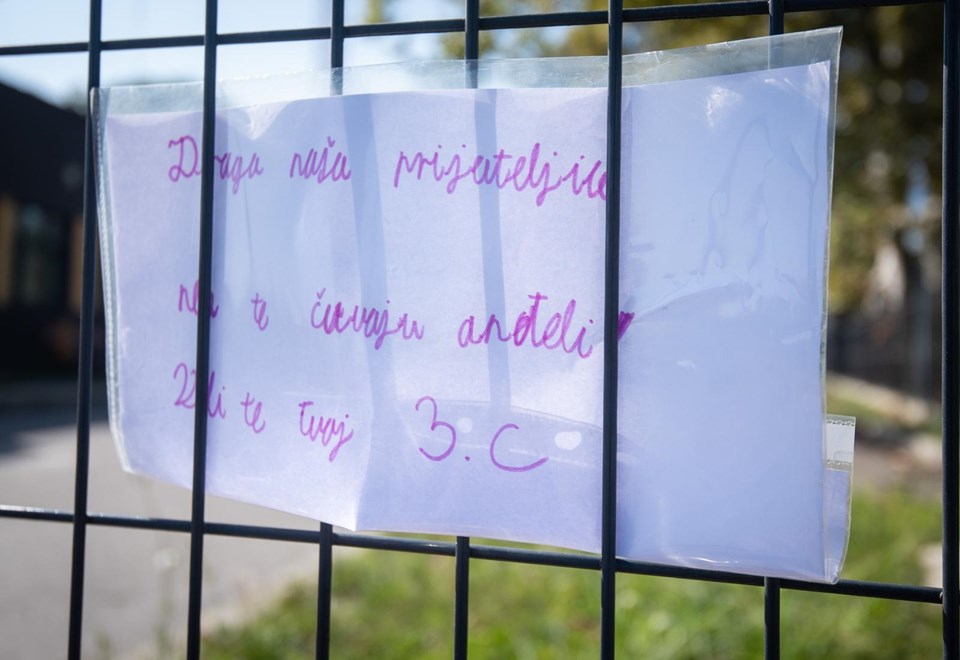 Draga naša prijateljice
nek te čuvaju anđeli
Voli te tvoj 3.C